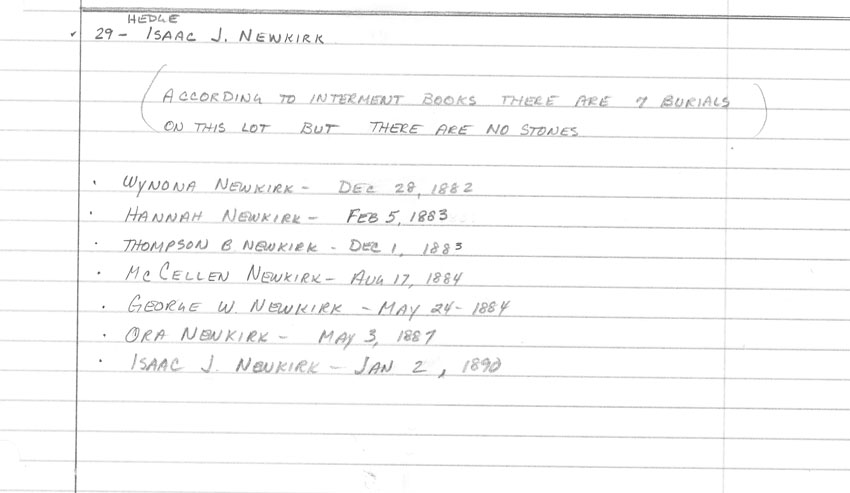 HEDGE
✓ 29 - ISAAC J. NEWKIRK
(ACCORDING TO INTERMENT BOOKS THERE ARE 7 BURIALS
ON THIS LOT BUT THERE ARE NO STONES)
· WYNONA NEWKIRK - DEC 28, 1882
· HANNAH NEWKIRK - FEB 5, 1883
· THOMPSON B NEWKIRK - DEC 1, 1883
· MC CELLEN NEWKIRK - AUG 17, 1884
· GEORGE W. NEWKIRK - MAY 24 - 1884
· ORA NEWKIRK - MAY 3, 1887
· ISAAC J. NEWKIRK - JAN 2, 1890